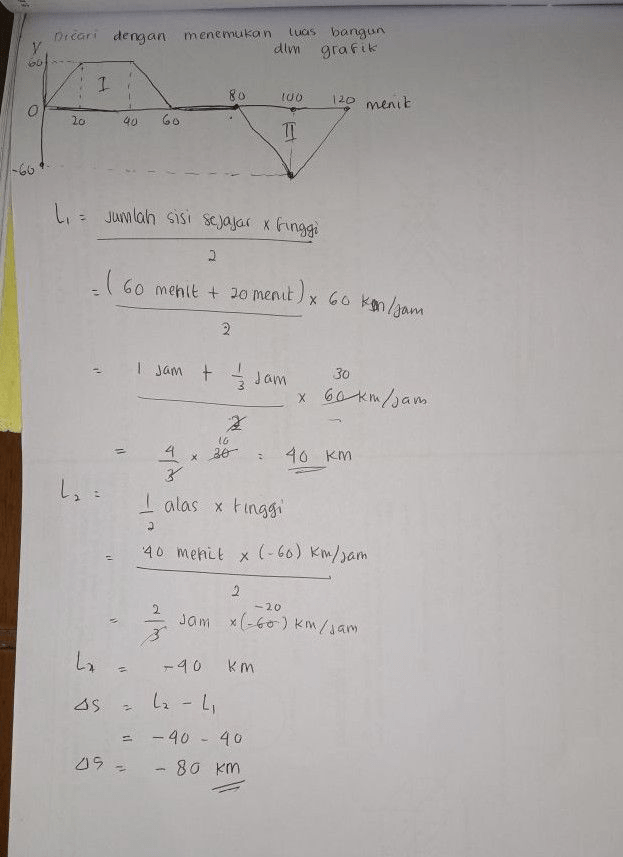 Dicari dengan menemukan luas bangun
dlm grafik
V
60
I
0
20
40
60
80
100
120 menit
II
-60
L₁ = Jumlah sisi sejajar x tinggi
2
= (60 menit + 20 menit) x 60 km/jam
2
30
= 1 Jam + 1/3 Jam x 60 km/jam
2
10
= 4/3 x 30 = 40 km
L₂ =
1/2 alas x tinggi
= 40 menit x (-60) km/jam
2
-20
= 2/3 Jam x (-60) km/jam
L₂ = -40 km
ΔS = L₂ - L₁
= -40 - 40
ΔS = -80 km